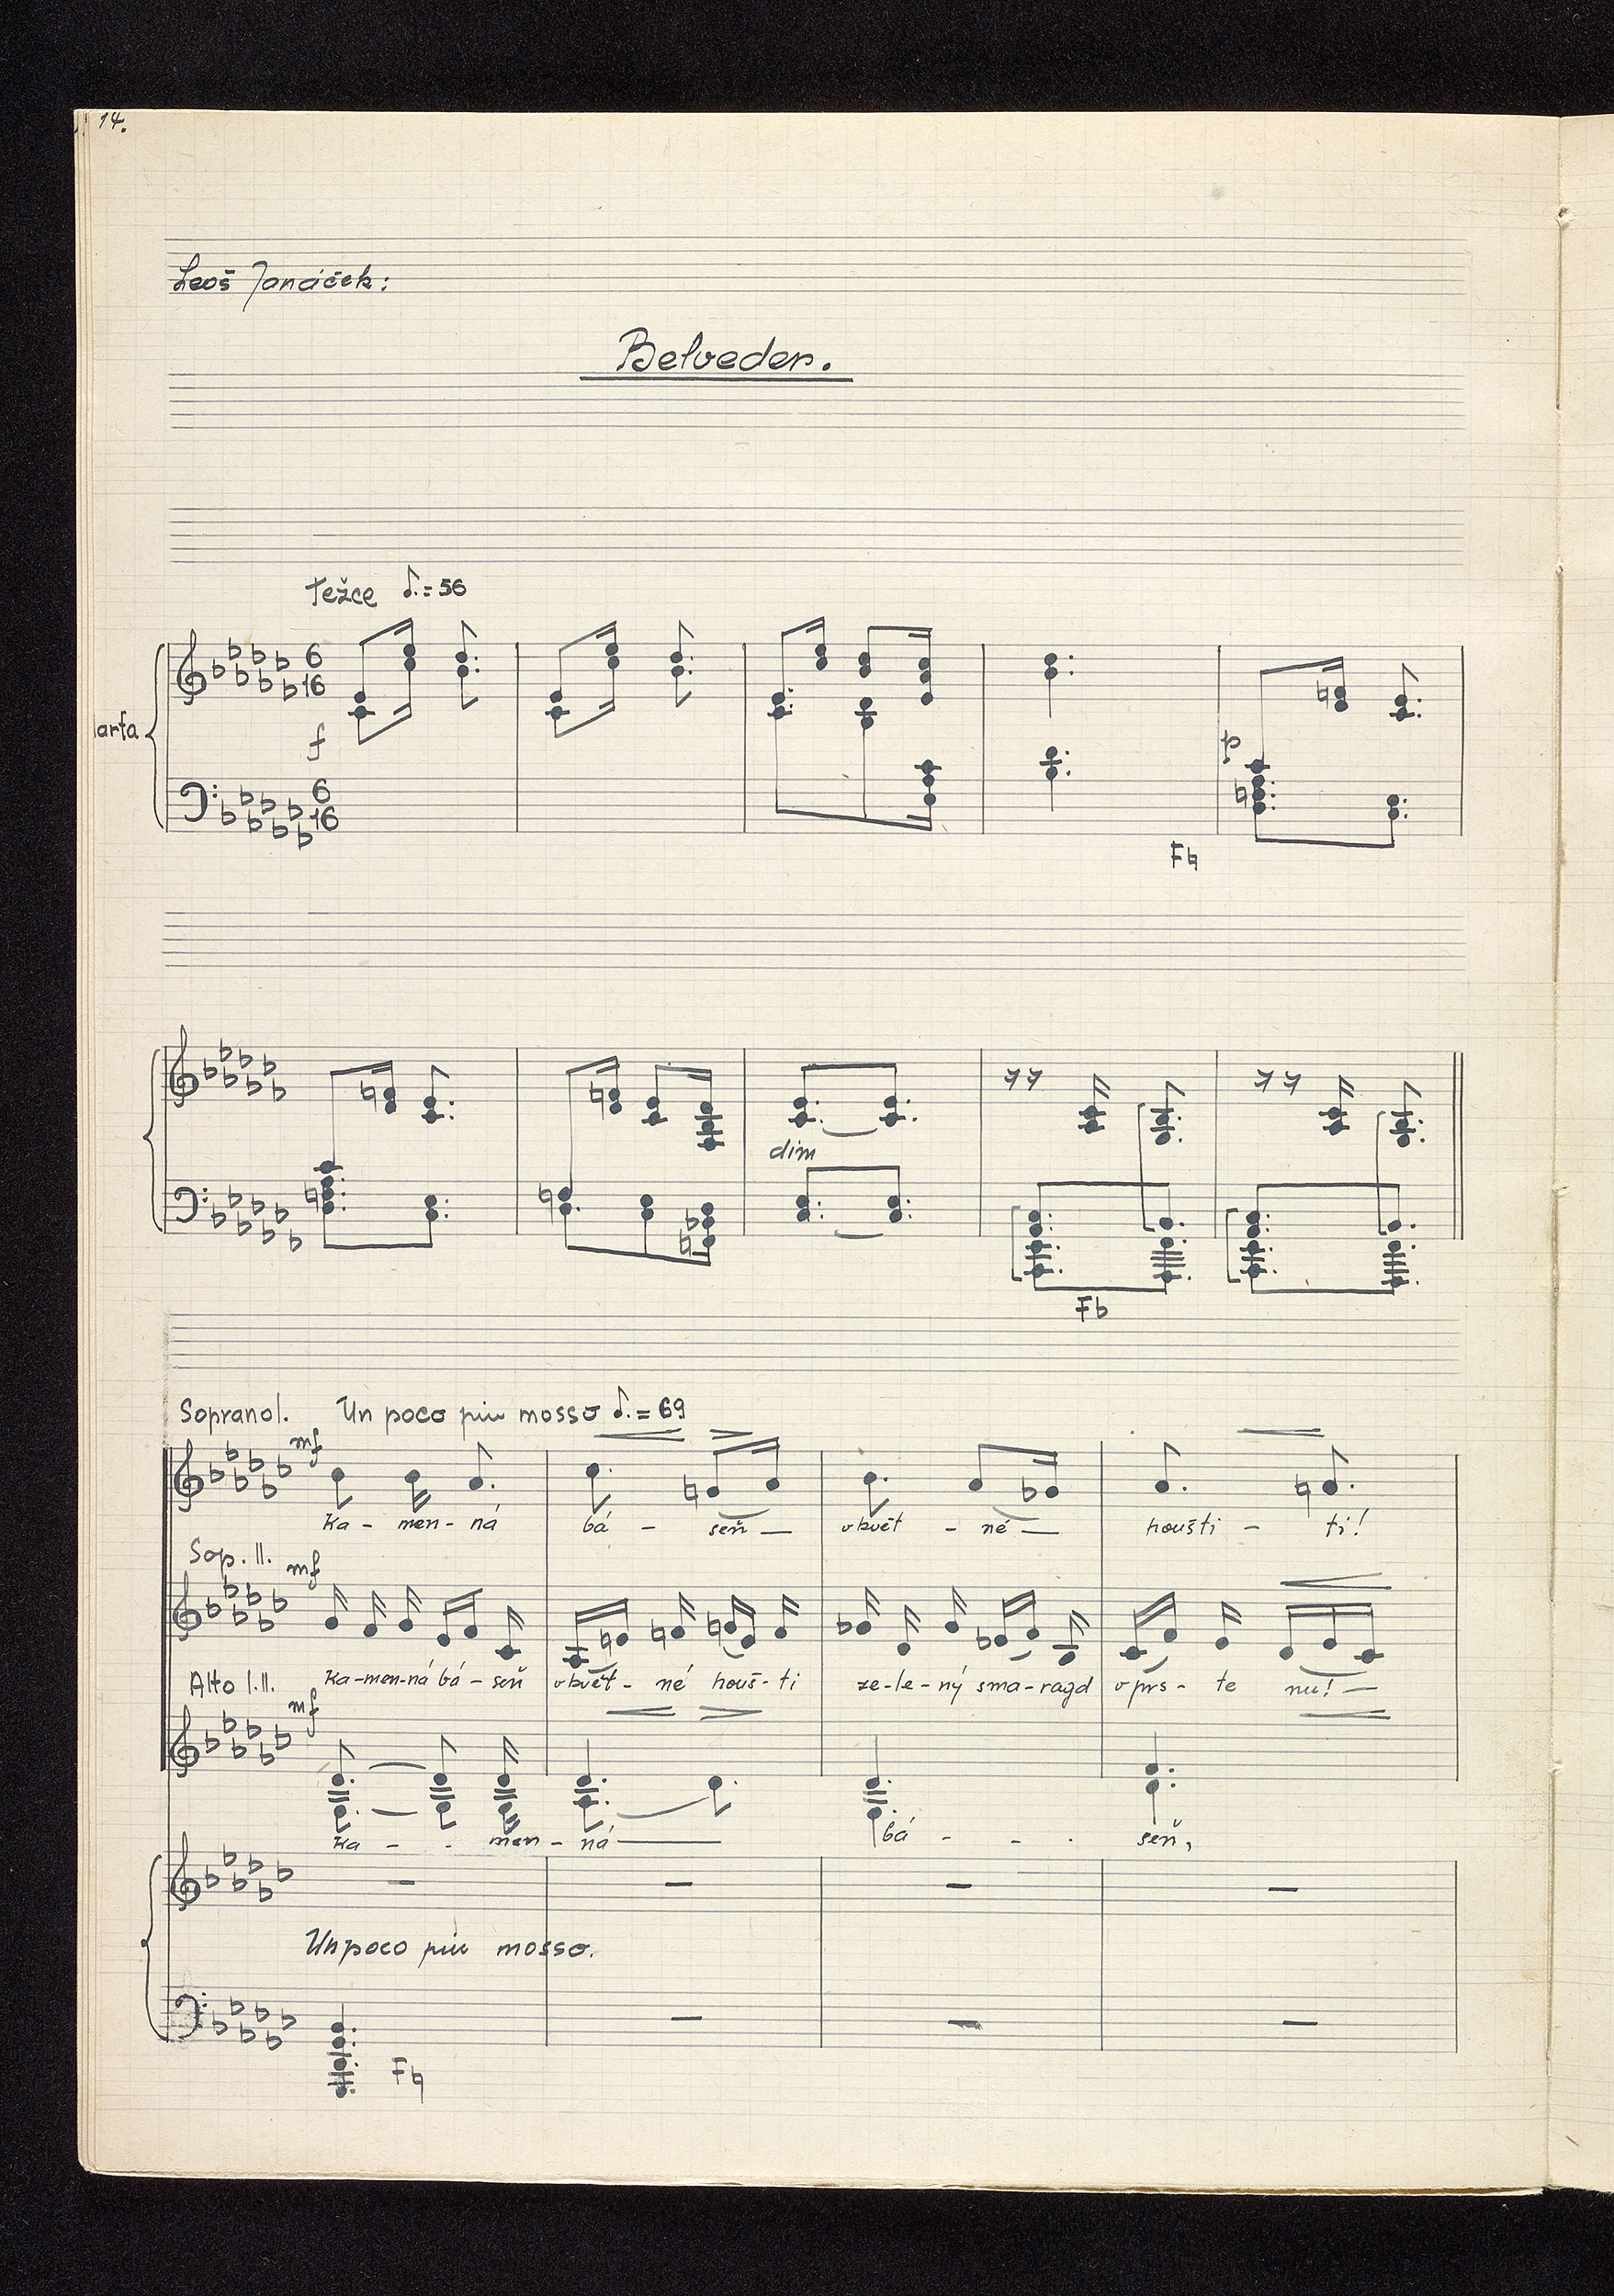 14.
Leoš Janáček:
Belveder.
Težce ♪. = 56
6
16
arfa
f
6
16
p
F♮
dim
F♭
Sopran I. Un poco piu mosso ♪. = 69
mf
Ka - men - ná bá - seň — vkvět - né — houšti - ti!
Sop. II.
mf
Ka-men-ná bá - seň vkvět - né houš - ti ze-le-ný sma-ragd v prs - te nu! —
Alto I. II.
mf
Ka - - men - ná — bá - - - seň,
Un poco piu mosso.
F♮